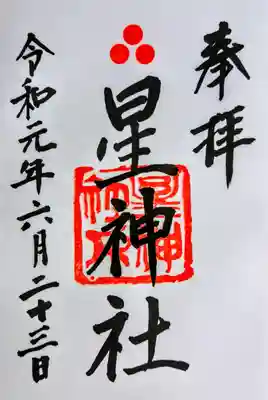 奉拝
星神社
令和元年六月二十三日